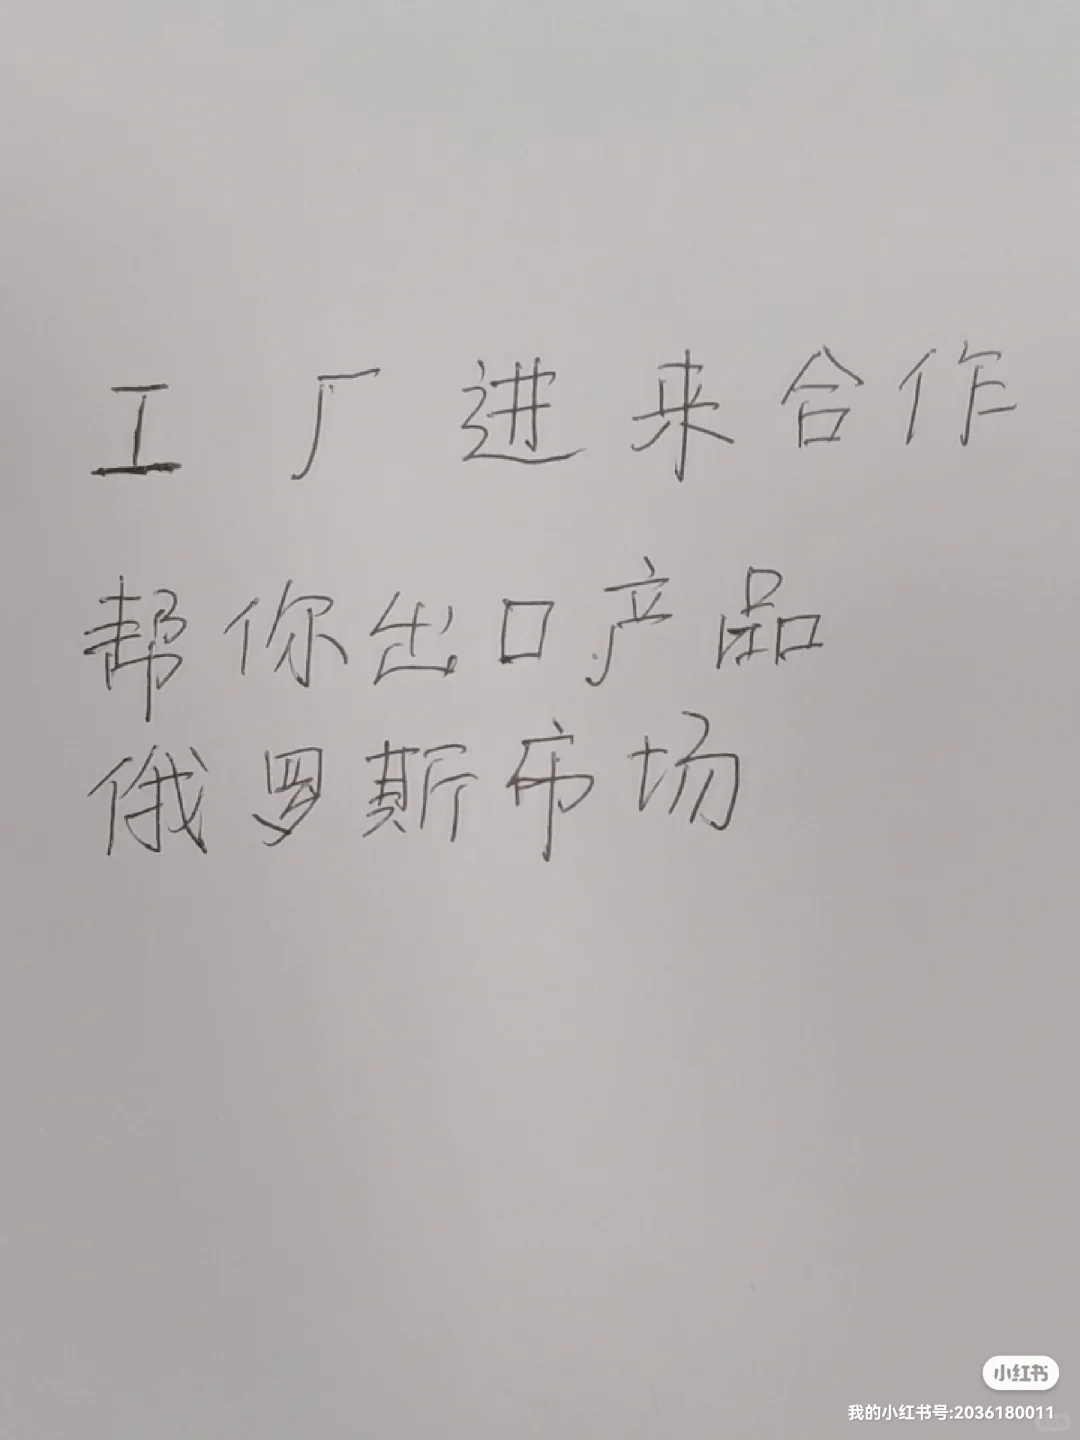 工厂进来合作
帮你出口产品
俄罗斯市场
小红书
我的小红书号:2036180011